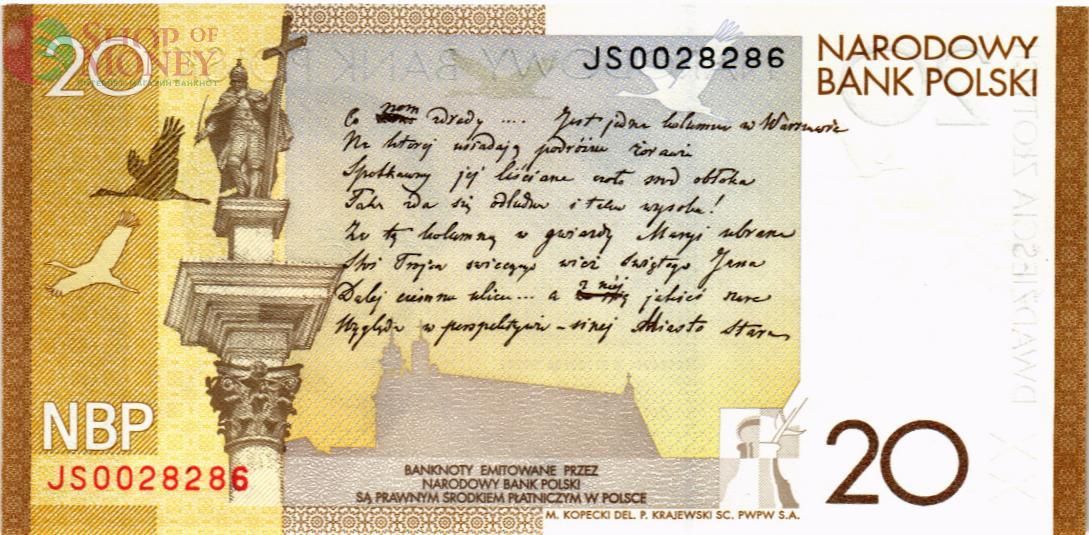 SHOP OF
MONEY
ИНТЕРНЕТ-МАГАЗИН БАНКНОТ
20
JS0028286
NARODOWY
BANK POLSKI
Co nam zdradzy .... Jest jedna kolumna w Warszawie
Na której usiadają podróżne żurawie
Spotkawszy jej liściane czoło śród obłoka
Taka zda się odludna i taka wysoka!
Za tą kolumną w gwiazdy Maryi ubrana
Stoi Trójca świecącego wież świętego Jana
Dalej ciemna ulica... a z niéj jakieś szare
Wygląda w perspektywie - sinej Miasto stare
NBP
JS0028286
BANKNOTY EMITOWANE PRZEZ
NARODOWY BANK POLSKI
SĄ PRAWNYM ŚRODKIEM PŁATNICZYM W POLSCE
20
M. KOPECKI DEL. P. KRAJEWSKI SC. PWPW S.A.